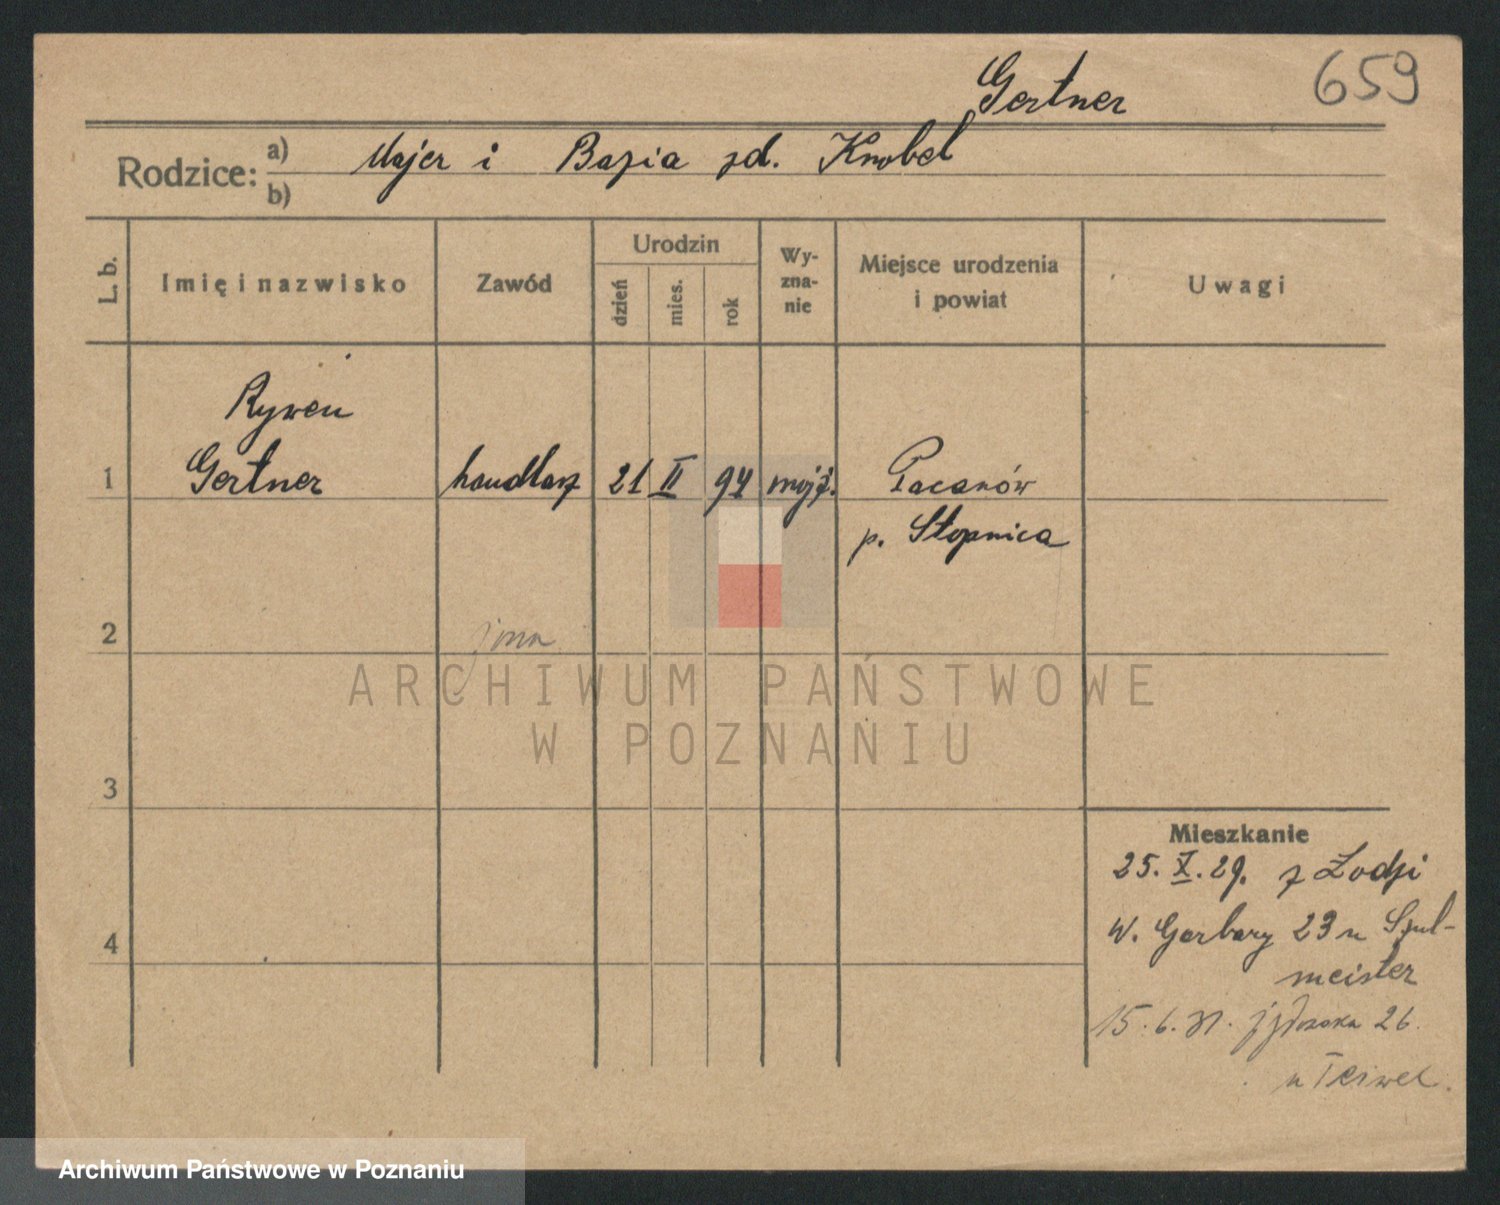 Gertner
659
Rodzice: a) Majer i Bazia zd. Knobel
b)
L. b.
Imię i nazwisko
Zawód
Urodzin
dzień
mies.
rok
Wy-
zna-
nie
Miejsce urodzenia
i powiat
Uwagi
Rywen
1 Gertner handlarz 21 II 94 mojż. Pacanów
p. Stopnica
2
3
ARCHIWUM PAŃSTWOWE
W POZNANIU
Mieszkanie
25. X. 29. z Łodzi
4 W. Garbary 23 u Szul-
meister
15. 6. 31. 26.
u Teiwel.
Archiwum Państwowe w Poznaniu